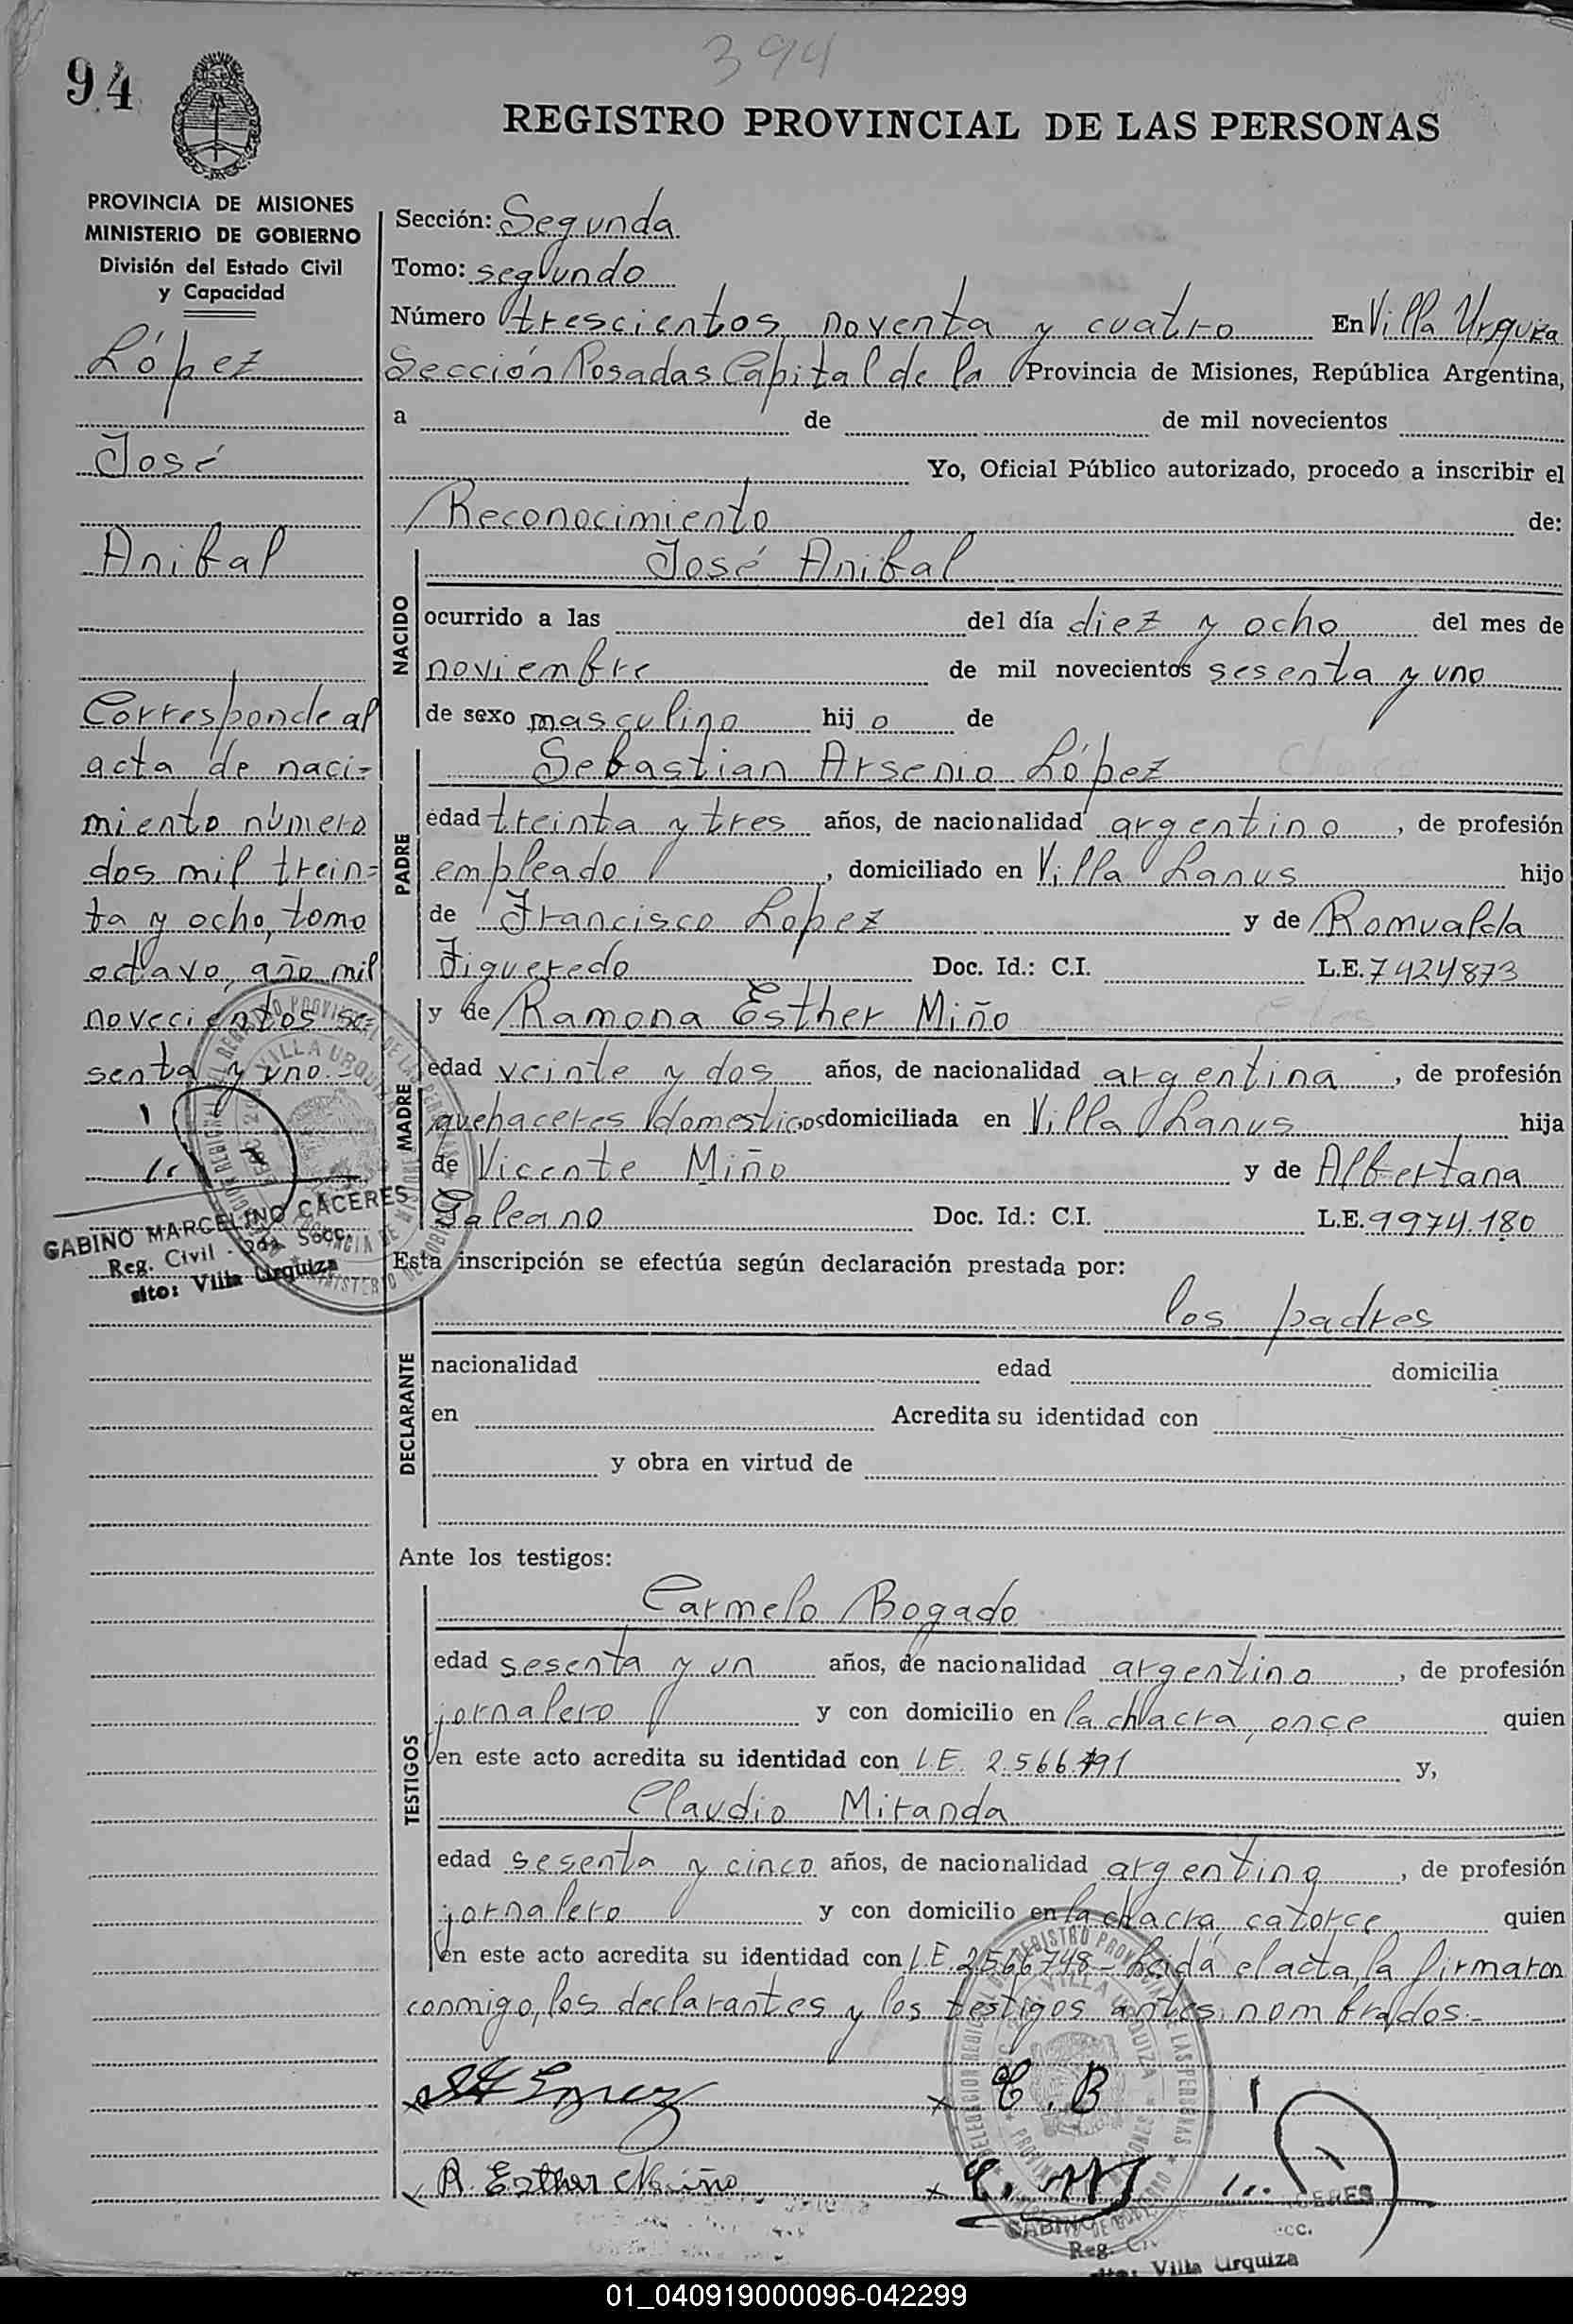 394
94
REGISTRO PROVINCIAL DE LAS PERSONAS
PROVINCIA DE MISIONES
MINISTERIO DE GOBIERNO
División del Estado Civil
y Capacidad
López
José
Anibal
Corresponde al
acta de naci=
miento número
dos mil trein=
ta y ocho, tomo
octavo, año mil
novecientos se-
senta y uno.-
GABINO MARCELINO CACERES
Reg. Civil - 2da Secc.
sito: Villa Urquiza
Sección: Segunda
Tomo: segundo
Número trescientos noventa y cuatro En Villa Urquiza
Sección Posadas Capital de la Provincia de Misiones, República Argentina,
a de de mil novecientos
Yo, Oficial Público autorizado, procedo a inscribir el
Reconocimiento de:
NACIDO
José Anibal
ocurrido a las del día diez y ocho del mes de
noviembre de mil novecientos sesenta y uno
de sexo masculino hijo de
PADRE
Sebastian Arsenio López
edad treinta y tres años, de nacionalidad argentino, de profesión
empleado, domiciliado en Villa Lanus hijo
de Francisco Lopez y de Romualda
Figueredo Doc. Id.: C.I. L.E. 7424873
MADRE
y de Ramona Esther Miño
edad veinte y dos años, de nacionalidad argentina, de profesión
quehaceres domesticos domiciliada en Villa Lanus hija
de Vicente Miño y de Albertana
Galeano Doc. Id.: C.I. L.E. 9974.180
Esta inscripción se efectúa según declaración prestada por:
DECLARANTE
los padres
nacionalidad edad domicilia
en Acredita su identidad con
y obra en virtud de
Ante los testigos:
TESTIGOS
Carmelo Bogado
edad sesenta y un años, de nacionalidad argentino, de profesión
jornalero y con domicilio en la chacra once quien
en este acto acredita su identidad con L.E. y,
Claudio Miranda
edad sesenta y cinco años, de nacionalidad argentino, de profesión
jornalero y con domicilio en la chacra catorce quien
en este acto acredita su identidad con L.E. 2566748 - Leida el acta, la firmaron
conmigo, los declarantes y los testigos antes nombrados.-
C. B
R. Esther Miño C. M
Villa Urquiza
01_040919000096-042299